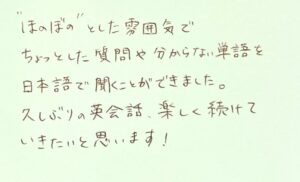 "ほのぼの"とした雰囲気で
ちょっとした質問や分からない単語を
日本語で聞くことができました。
久しぶりの英会話、楽しく続けて
いきたいと思います!